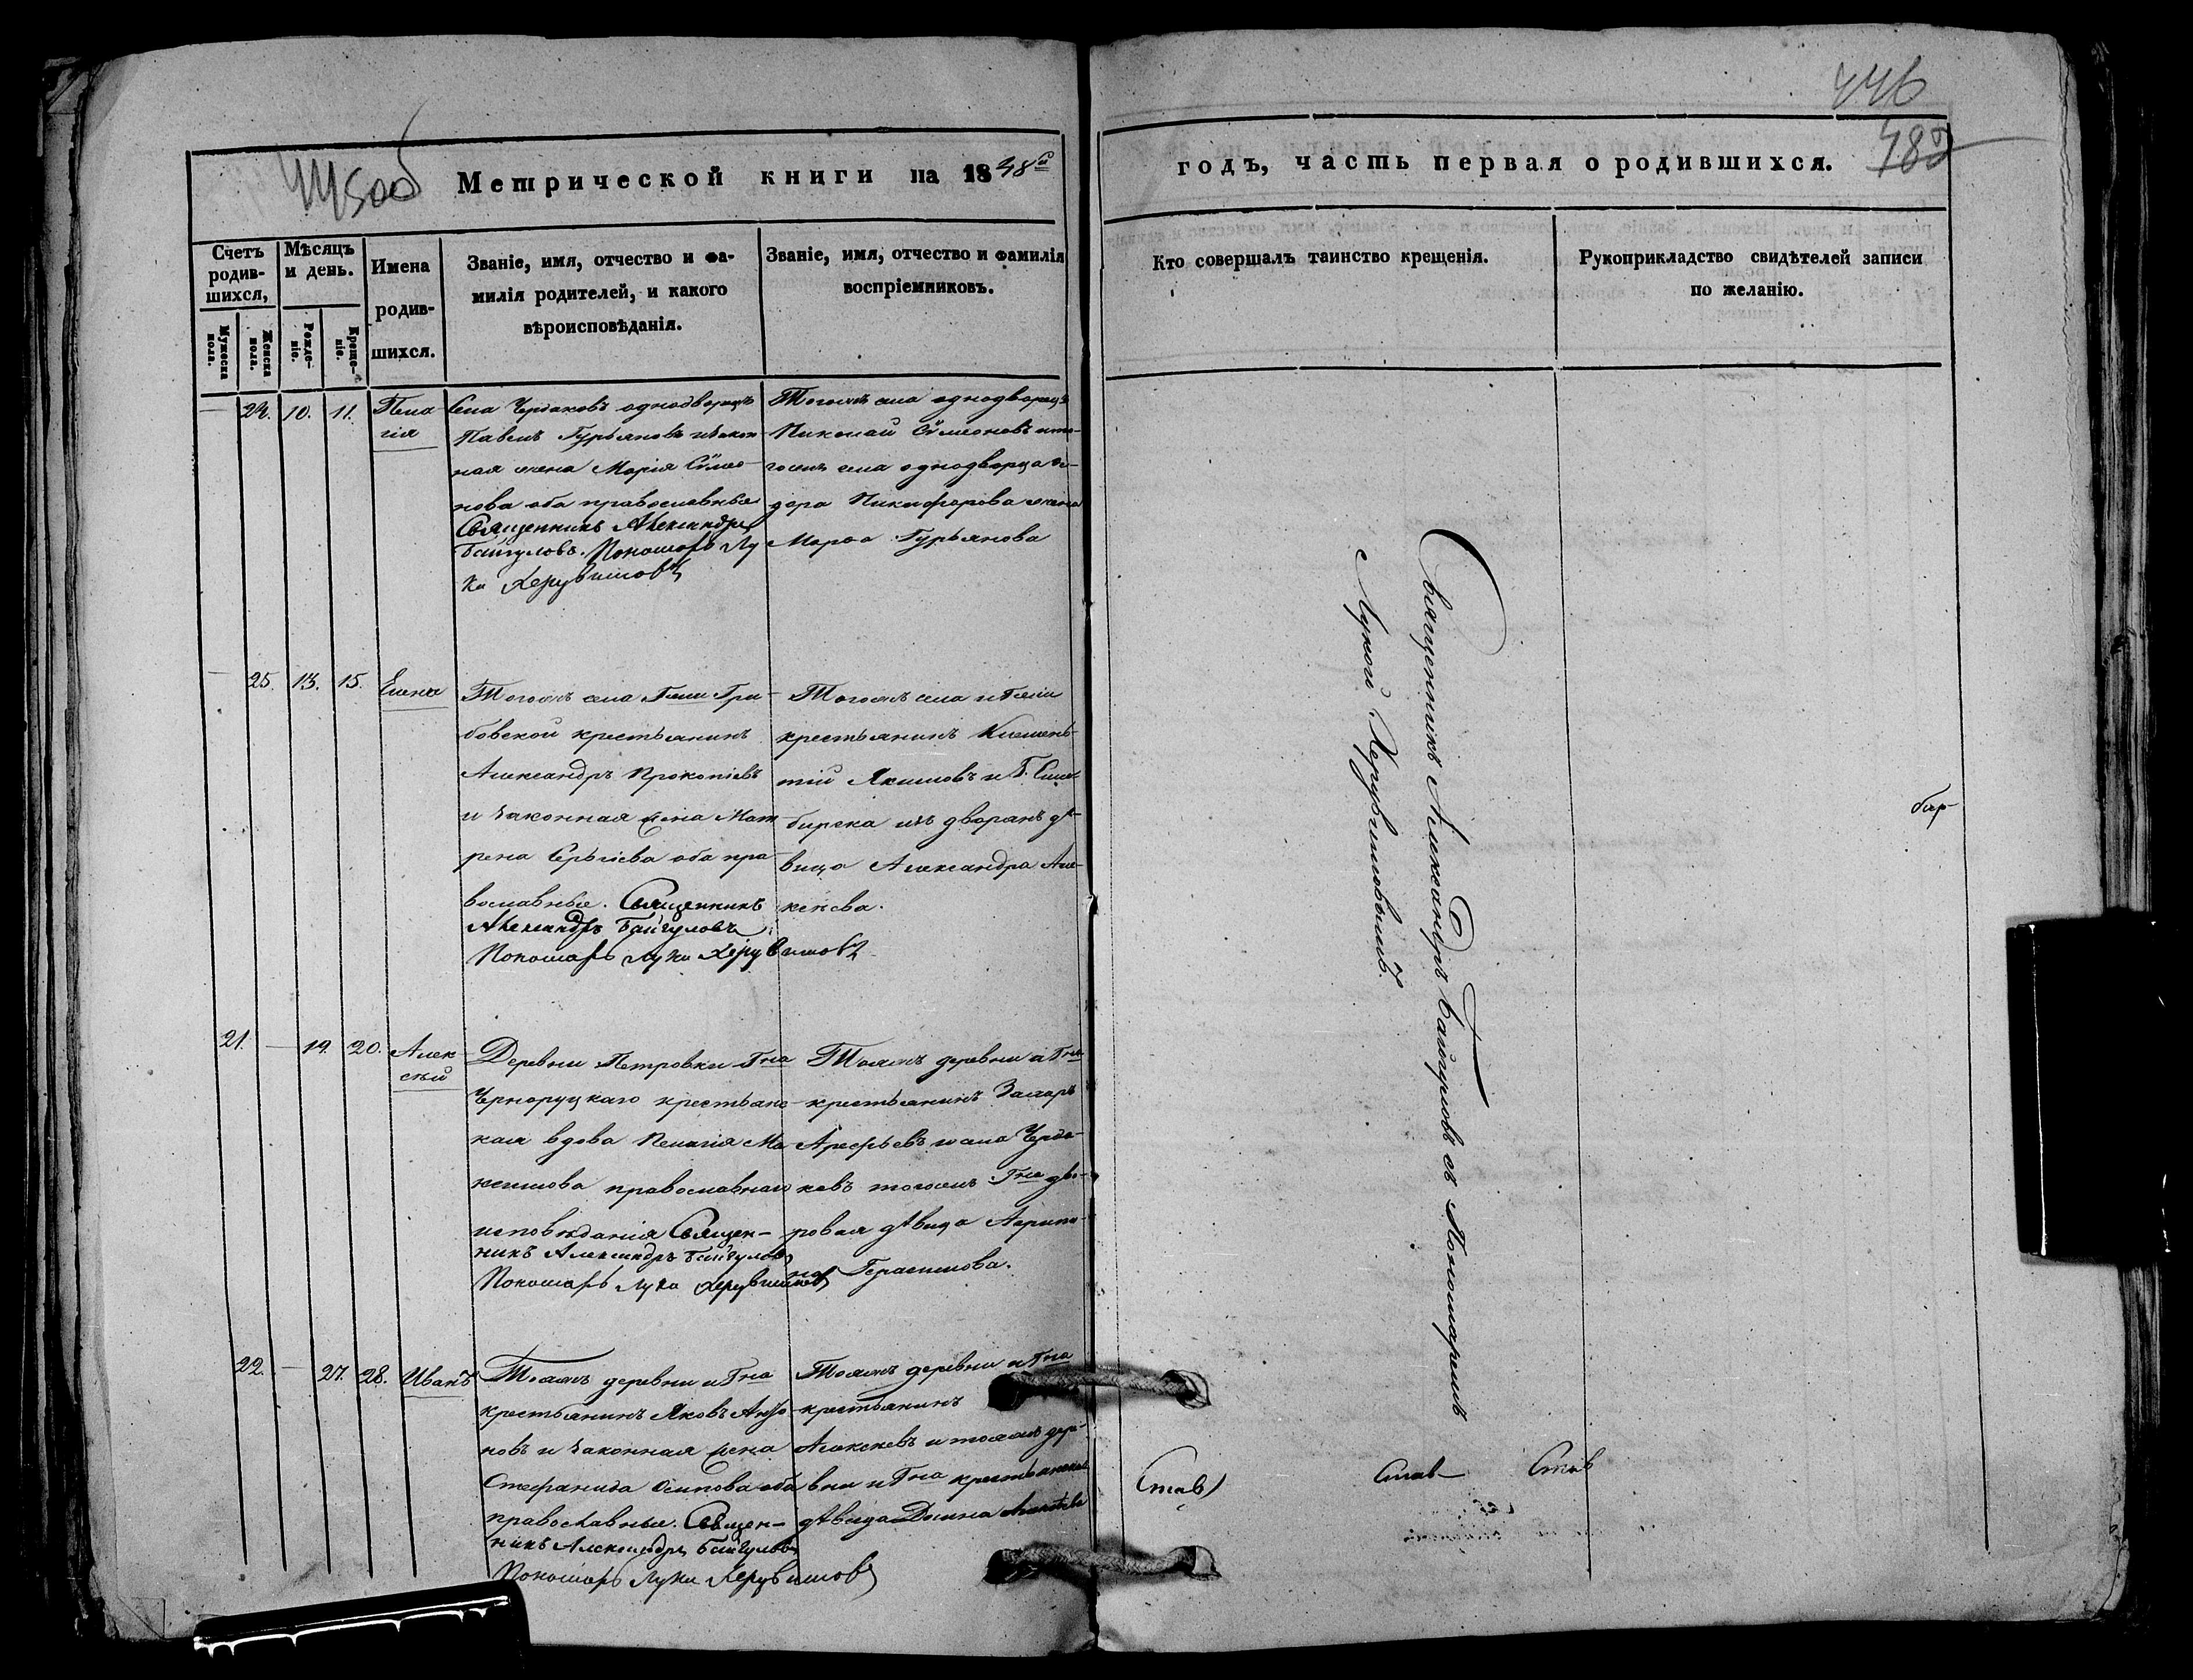 446
482
Метрической книги на 1848й
годъ, часть первая о родившихся.
Счетъ родив-шихся,
Мужеска пола.
Женска пола.
Мѣсяцъ и день.
Рожде-ніе.
Креще-ніе.
Имена родив-шихся.
Званіе, имя, отчество и фа-
милія родителей, и какого
вѣроисповѣданія.
Званіе, имя, отчество и фамилія
воспріемниковъ.
Кто совершалъ таинство крещенія.
Рукоприкладство свидѣтелей записи
по желанію.
24. 10. 11. Пела
гія
Села Чердаковъ однодворецъ
Павелъ Гурьяновъ и закон
ная жена Марія Сѵмео-
нова оба православные
Священникъ Александръ
Байгуловъ. Пономарь Лу
ка Херувимовъ
Тогожъ села однодворецъ
Николай Сѵмеоновъ и то-
гожъ села однодворца Ѳе-
дора Никифорова жена
Марѳа Гурьянова
25. 13. 15. Елена
Тогожъ села Гжи Гри-
бовской крестьянинъ
Александръ Прокопіевъ
и законная жена Мат
рена Сергіева оба пра-
вославные. Священникъ
Александръ Байгуловъ
Пономарь Лука Херувимовъ
Тогожъ села и Гжи
крестьянинъ Клемень-
тій Якимовъ и Г. Сим-
бирска изъ дворянъ дѣ-
вица Александра Але-
ксѣева.
21. 19. 20. Алек
сѣй
Деревни Петровки Гна
Чернорудкаго крестьянс-
кая вдова Пелагія Ма
ксимова православнаго
исповѣданія Священ-
никъ Александръ Байгуловъ
Пономарь Лука Херувимовъ
Тояжъ деревни и Гна
крестьянинъ Захаръ
Арефьевъ и села Черда-
ковъ тогожъ Гна дво-
ровая дѣвица Агрипи-
на Герасимова.
22. 27. 28. Иванъ
Тояжъ деревни и Гна
крестьянинъ Яковъ Анто-
новъ и законная жена
Стефанида Осипова оба
православные. Священ-
никъ Александръ Байгуловъ
Пономарь Лука Херувимовъ
Тояжъ деревни и Гна
крестьянинъ
Алексѣевъ и тояжъ дер-
вни и Гна крестьянская
дѣвица Домна
Священникъ Александръ Байгуловъ съ Пономаремъ
Лукой Херувимовымъ.
бир-
Став
Став-
Став